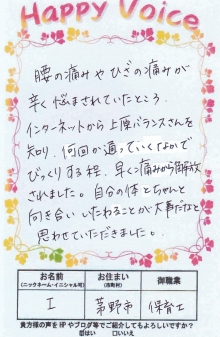 Happy Voice
腰の痛みやひざの痛みが
辛く悩まされていたところ、
インターネットから上原バランスさんを
知り、何回か通っていくなかで
びっくりする程、早くに痛みから解放
されました。自分の体とちゃんと
向き合い いたわることが大事だなと
思わせていただきました。
お名前 お住まい 御職業
(ニックネーム・イニシャル可) (市町村)
I 茅野市 保育士
貴方様の声をHPやブログ等でご紹介してもよろしいですか?
□はい □いいえ